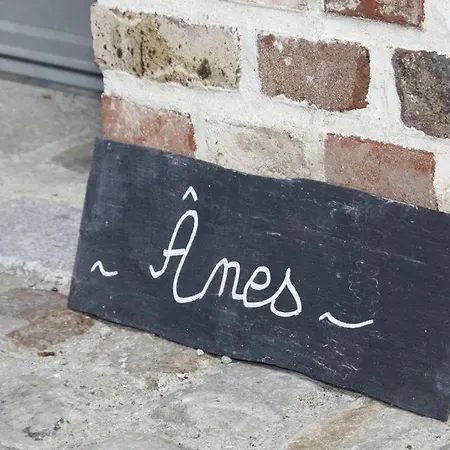 ~ Ânes ~